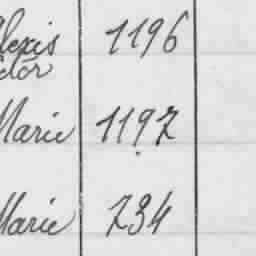 lexis 1196
ctor
Marie 1197
Marie 734